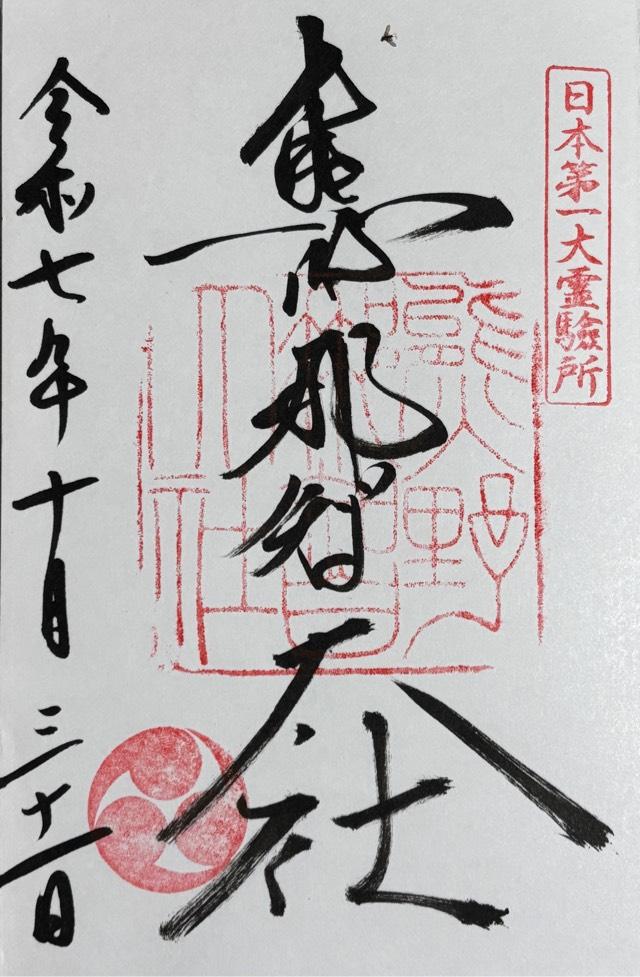 日本第一大霊驗所
熊野那智大社
熊野那智大社
令和七年十月三十一日